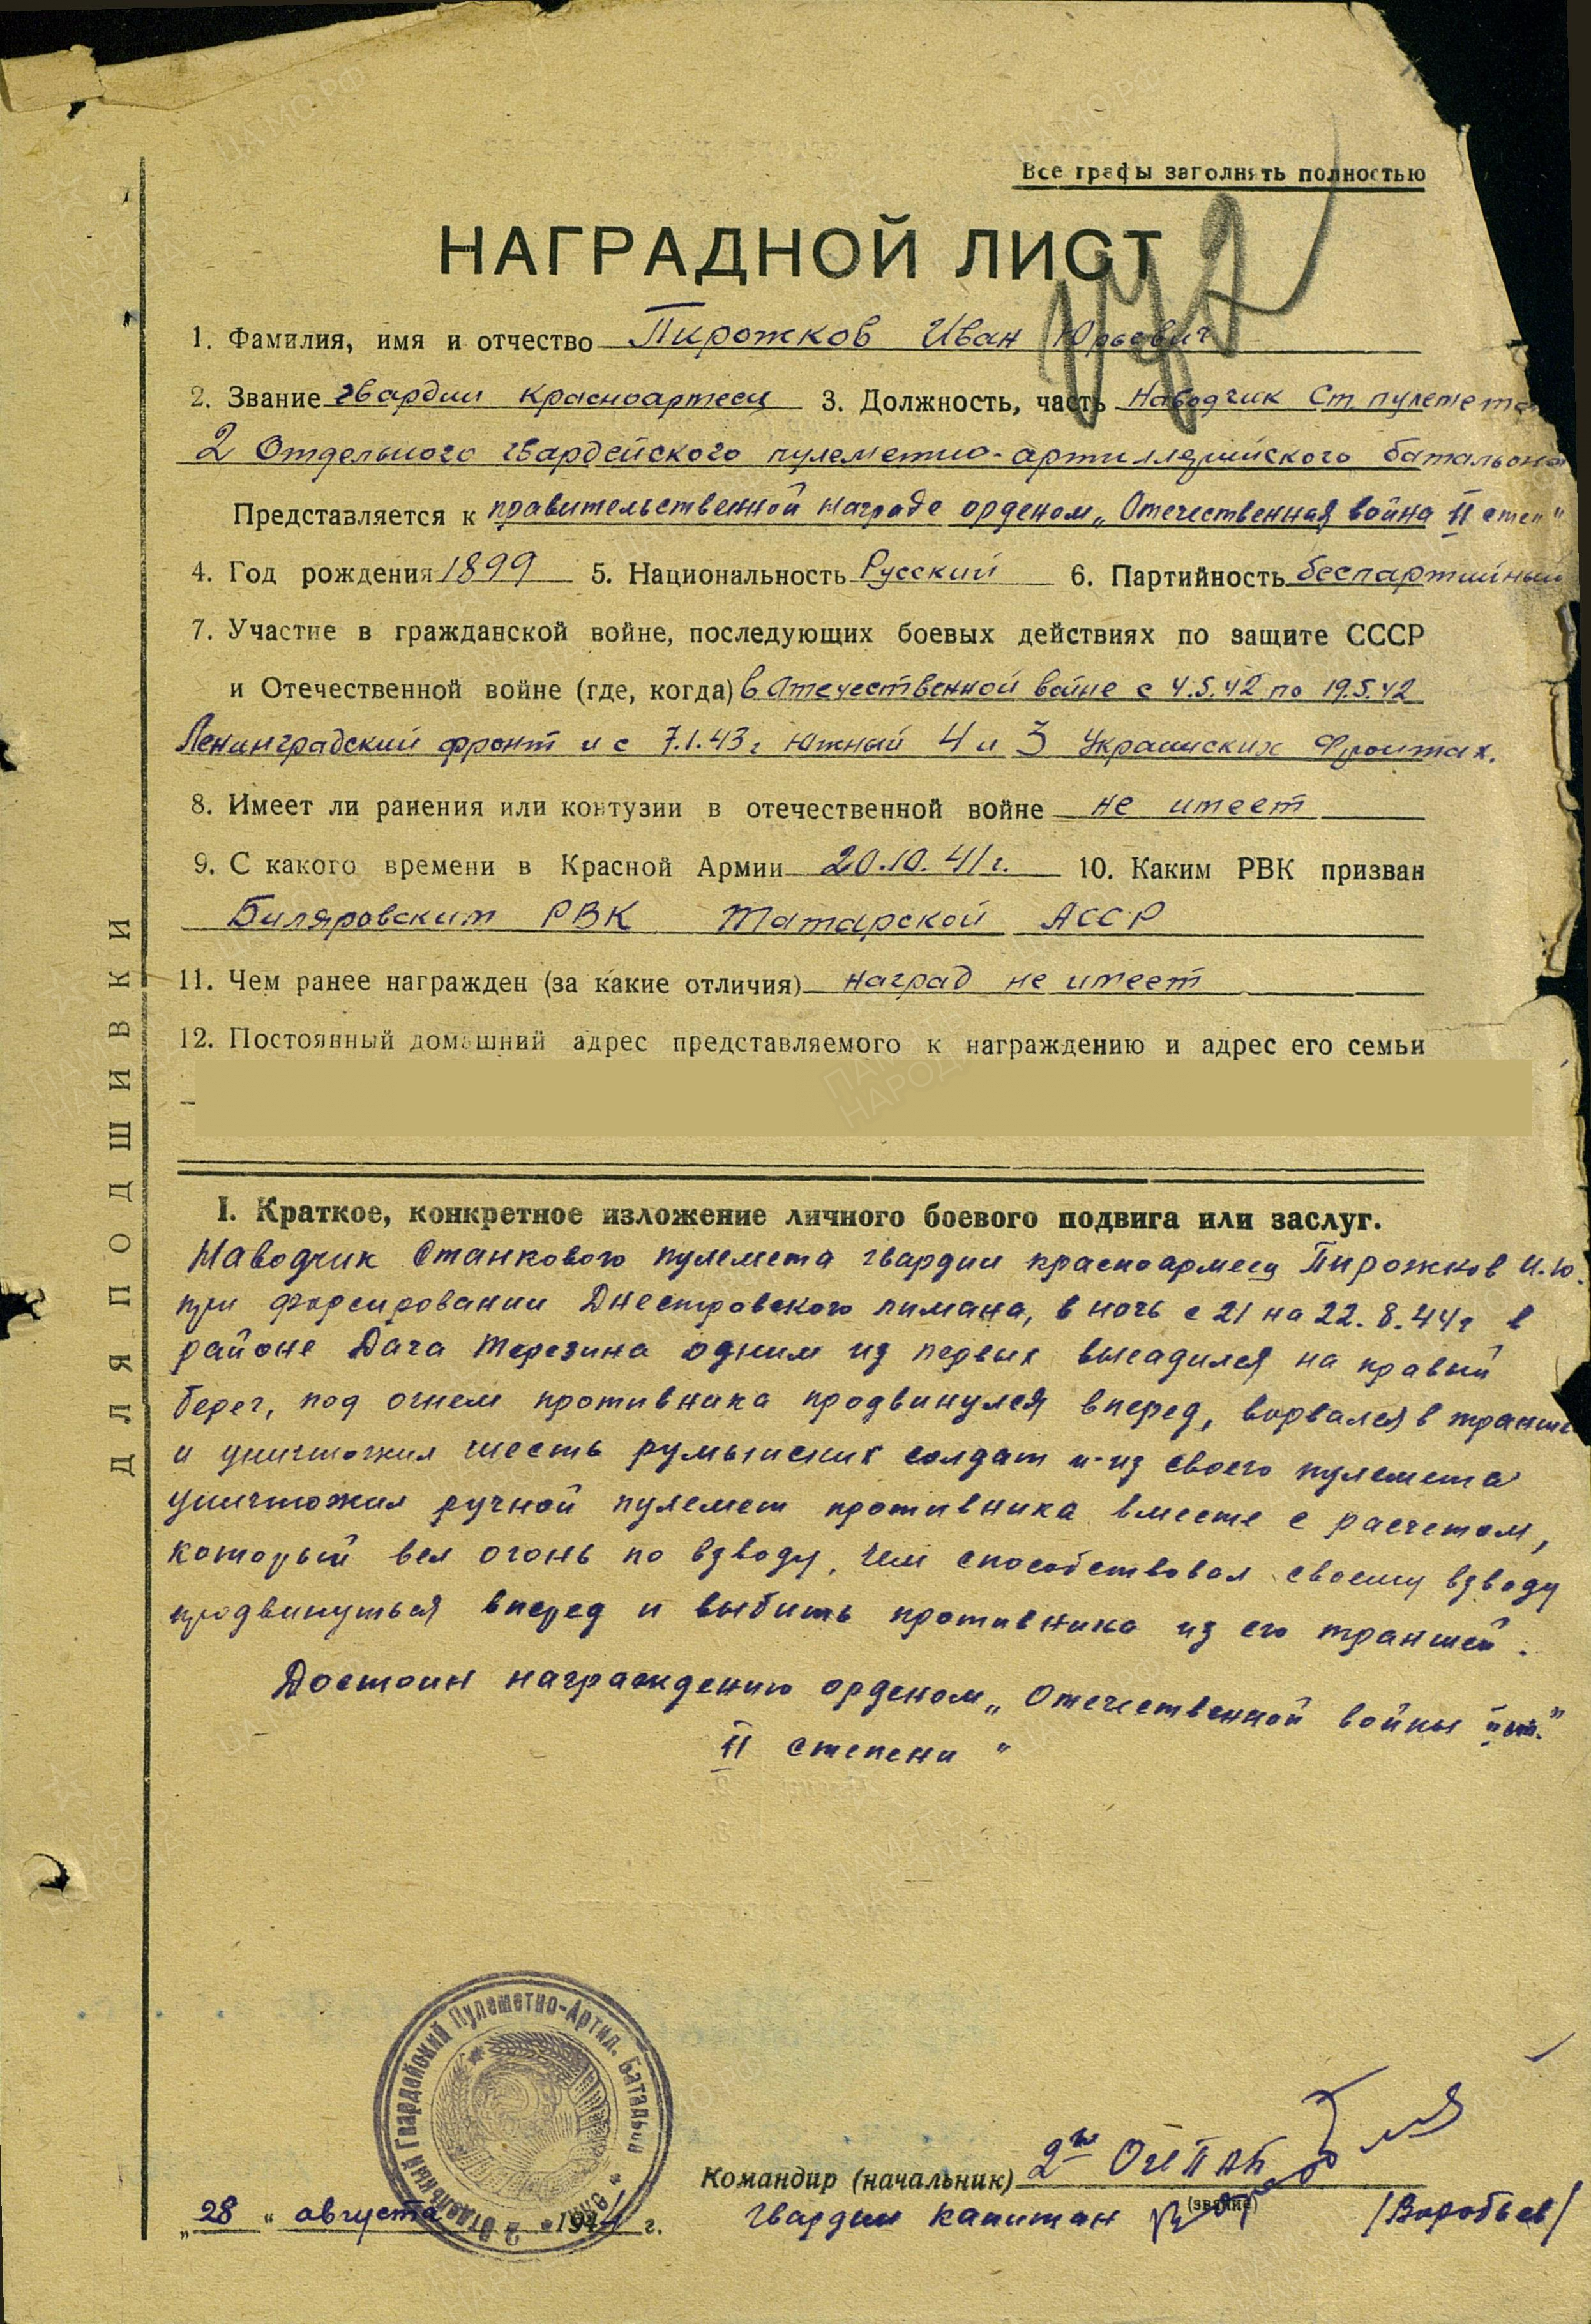 Все графы заполнять полностью
НАГРАДНОЙ ЛИСТ
1. Фамилия, имя и отчество Пирожков Иван Юрьевич
2. Звание гвардии красноармеец 3. Должность, часть Наводчик Ст. пулемета
2 Отдельного гвардейского пулеметно-артиллерийского батальона
Представляется к правительственной награде орденом „Отечественная война II степ"
4. Год рождения 1899 5. Национальность Русский 6. Партийность беспартийный
7. Участие в гражданской войне, последующих боевых действиях по защите СССР
и Отечественной войне (где, когда) в Отечественной войне с 4.5.42 по 19.5.42
Ленинградский фронт и с 7.1.43г Южный 4 и 3 Украинских Фронтах.
8. Имеет ли ранения или контузии в отечественной войне не имеет
9. С какого времени в Красной Армии 20.10.41г. 10. Каким РВК призван
Биляровским РВК Татарской АССР
11. Чем ранее награжден (за какие отличия) наград не имеет
12. Постоянный домашний адрес представляемого к награждению и адрес его семьи
I. Краткое, конкретное изложение личного боевого подвига или заслуг.
Наводчик Станкового пулемета гвардии красноармеец Пирожков И.Ю.
при форсировании Днестровского лимана, в ночь с 21 на 22.8.44г в
районе Дача Терезина одним из первых высадился на правый
берег, под огнем противника продвинулся вперед, ворвался в траншею
и уничтожил шесть румынских солдат и из своего пулемета
уничтожил ручной пулемет противника вместе с расчетом,
который вел огонь по взводу, чем способствовал своему взводу
продвинуться вперед и выбить противника из его траншей.
Достоин награждению орденом „Отечественной войны II ст."
II степени "
ДЛЯ ПОДШИВКИ
2 Отдельный Гвардейский Пулеметно-Артил. Батальон
Командир (начальник) 2го ОГПАБ
(звание)
„28" августа 1944 г.
Гвардии капитан /Воробьев/